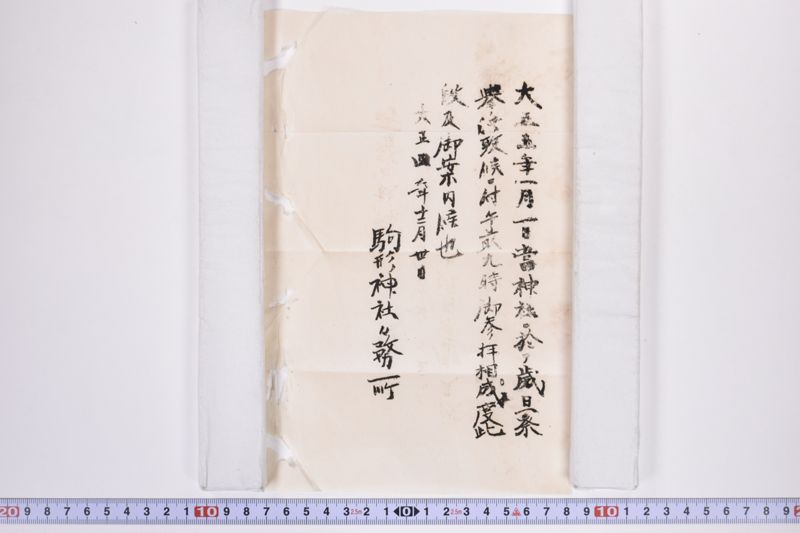 大正五年一月一日當神社ニ於テ歳旦祭
擧行致候ニ付午前九時御参拝相成度此
段及御案内候也
大正四年十二月廿日
駒形神社々務所
20 9 8 7 6 5 4 3 2 1 10 9 8 7 6 5 4 3 2.5m 2 1 0 1 2 2.5m 3 4 5 6 7 8 9 10 1 2 3 4 5 6 7 8 9